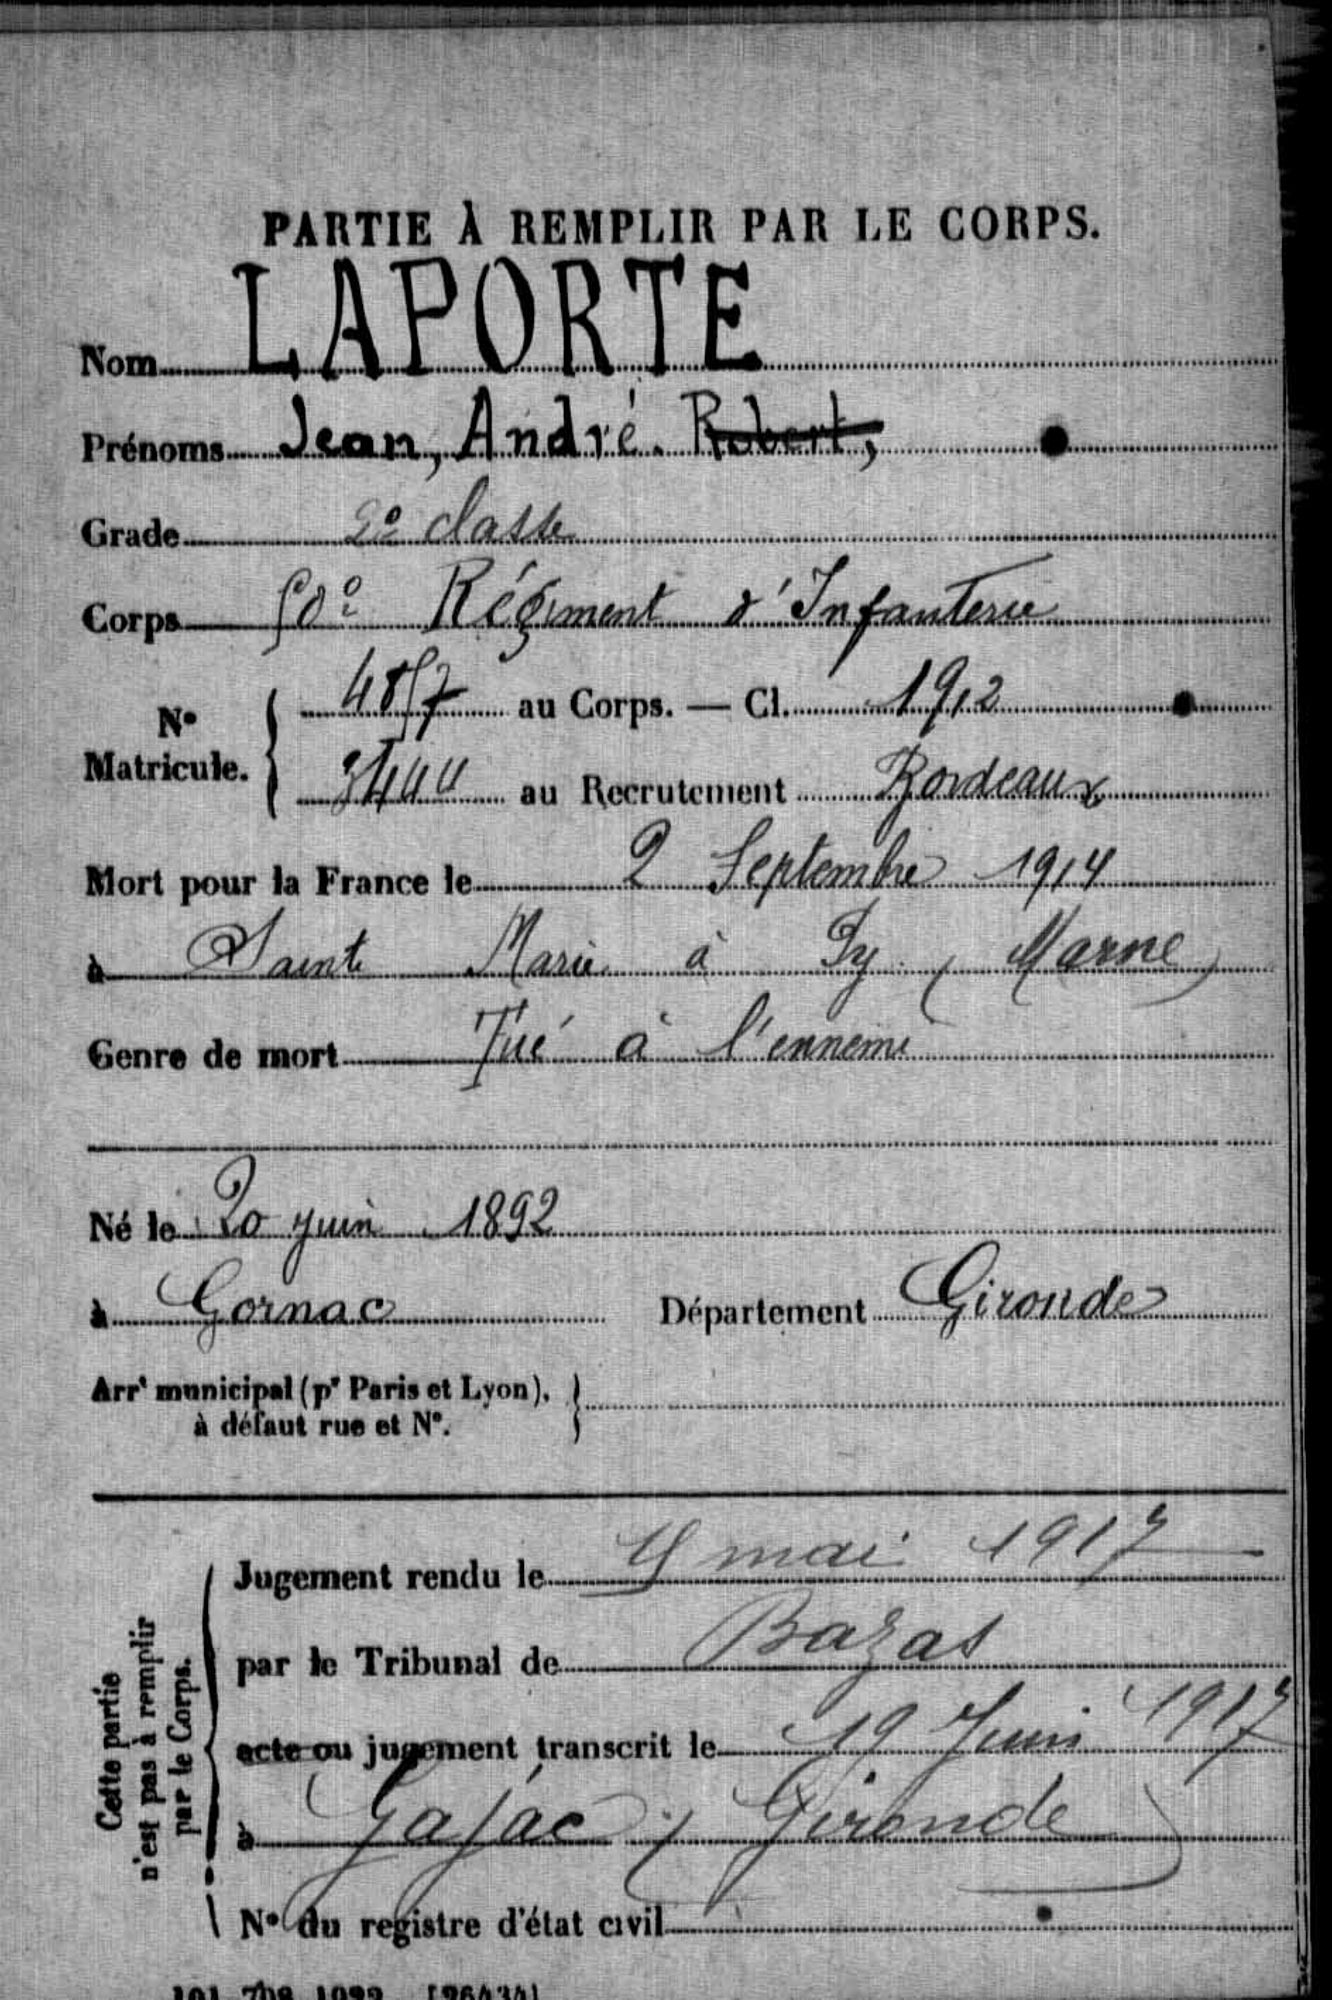 PARTIE À REMPLIR PAR LE CORPS.
Nom LAPORTE
Prénoms Jean, André. Robert,
Grade 2e classe
Corps 50e Régiment d'Infanterie
No Matricule. { 4857 au Corps. — Cl. 1912
3444 au Recrutement Bordeaux
Mort pour la France le 2 Septembre 1914
à Sainte Marie à Py (Marne)
Genre de mort Tué à l'ennemi
Né le 20 juin 1892
à Gornac Département Gironde
Arrt municipal (pr Paris et Lyon), }
à défaut rue et No.
Cette partie
n'est pas à remplir
par le Corps.
Jugement rendu le 9 mai 1917
par le Tribunal de Bazas
acte ou jugement transcrit le 19 Juin 1917
à Gajac (Gironde)
No du registre d'état civil
101. 708. 1922. [26434]